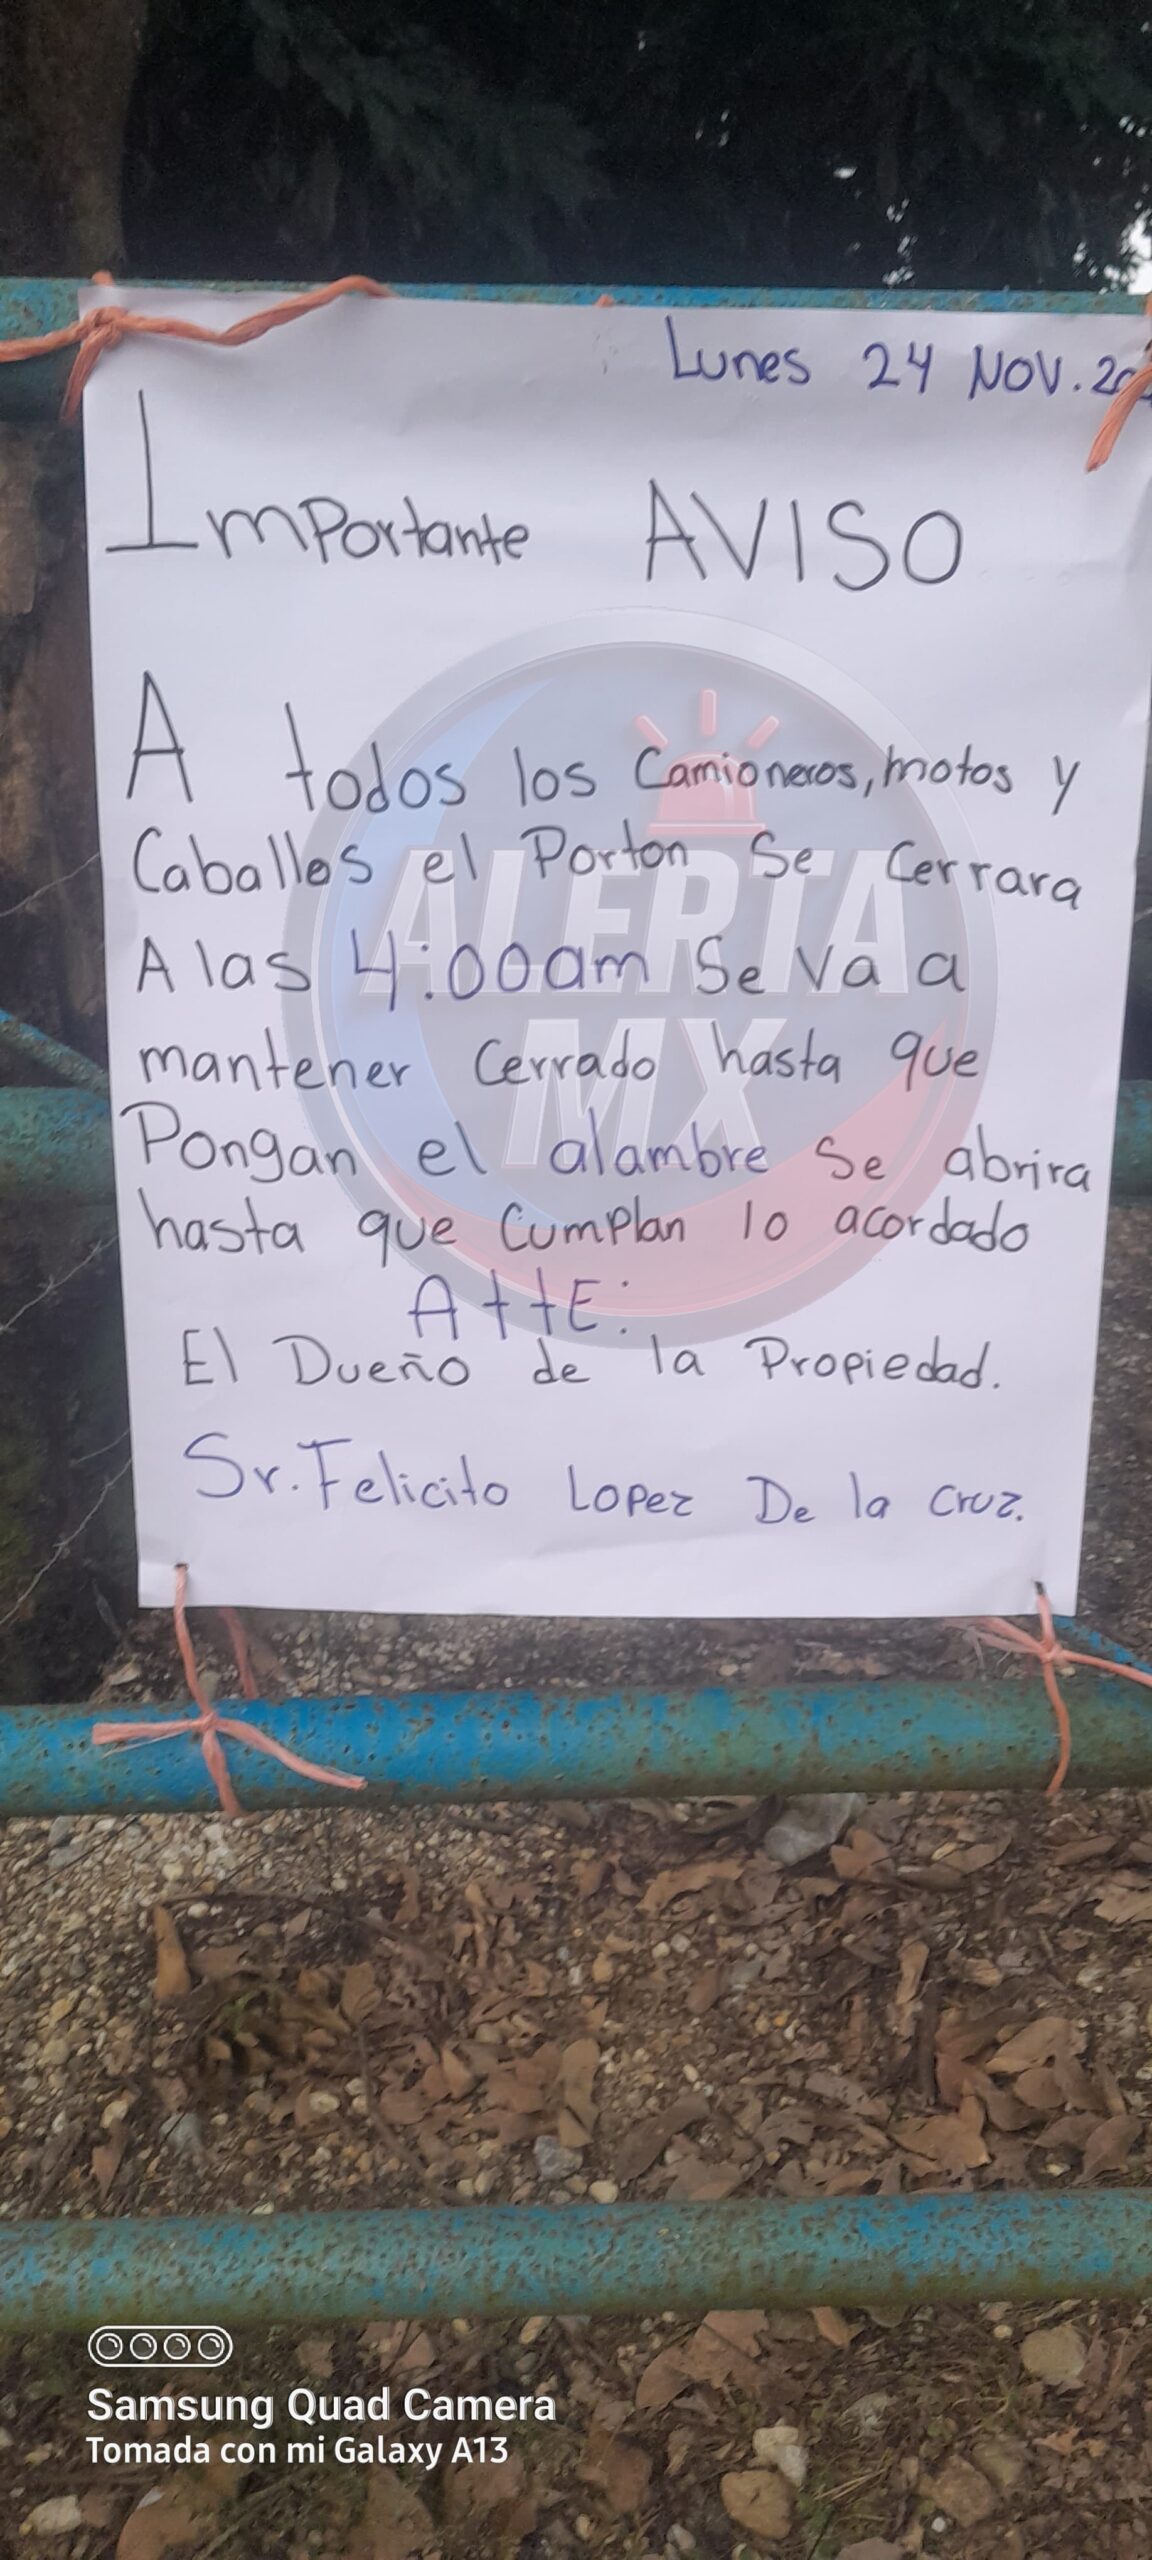 Lunes 24 NOV.
Importante AVISO
A todos los Camioneros, motos y
Caballos el Porton Se Cerrara
A las 4:00am Se Va a
mantener Cerrado hasta que
Pongan el alambre Se abrira
hasta que Cumplan lo acordado
AttE:
El Dueño de la Propiedad.
Sr. Felicito Lopez De la Cruz.
ALERTA
MX
Samsung Quad Camera
Tomada con mi Galaxy A13